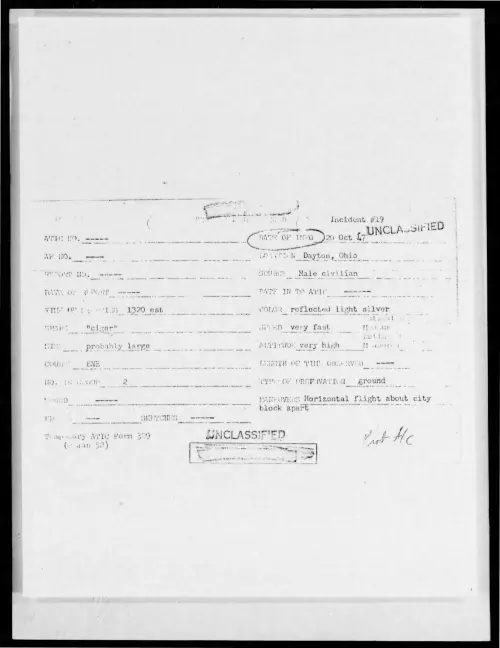 Incident #19
UNCLASSIFIED
ATIC NO. -----
DATE OF INFO 20 Oct 47
AF NO. ----
LOCATION Dayton, Ohio
REPORT NO. -----
SOURCE Male civilian
DATE OF REPORT -----
DATE IN TO ATIC -----
TIME OF SIGHTING 1320 est
COLOR reflected light silver
SHAPE "cigar"
SPEED very fast
SIZE probably large
ALTITUDE very high
COURSE ENE
LENGTH OF TIME OBSERVED ----
NO. IN GROUP 2
TYPE OF OBSERVATION ground
SOUND -----
MANEUVERS Horizontal flight about city
block apart
---
SKETCHES -----
Temporary ATIC Form 329
UNCLASSIFIED
Prob A/C